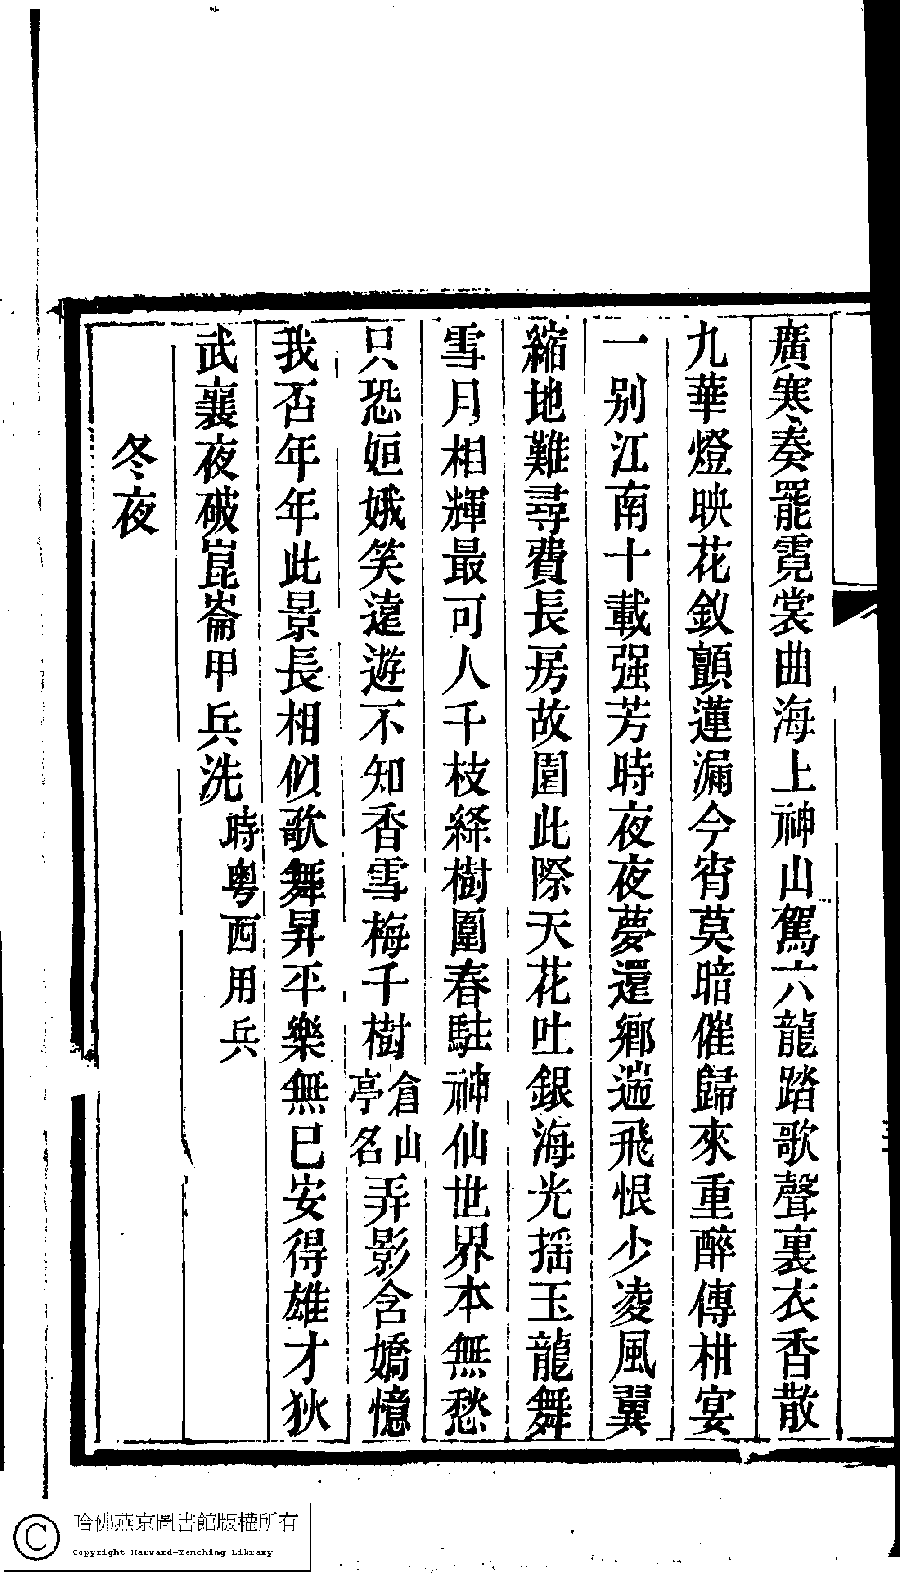 廣寒奏罷霓裳曲海上神山駕六龍踏歌聲裏衣香散
九華燈映花釵顫蓮漏今宵莫暗催歸來重醉傳柑宴
一别江南十載强芳時夜夜夢還鄉遄飛恨少凌風翼
縮地難尋費長房故園此際天花吐銀海光摇玉龍舞
雪月相輝最可人千枝綘樹圍春駐神仙世界本無愁
只恐姮娥笑遠遊不知香雪梅千樹倉山亭名弄影含嬌憶
我否年年此景長相似歌舞昇平樂無已安得雄才狄
武襄夜破崑崙甲兵洗時粤西用兵
冬夜
哈佛燕京圖書館版權所有
Copyright Harvard-Yenching Library